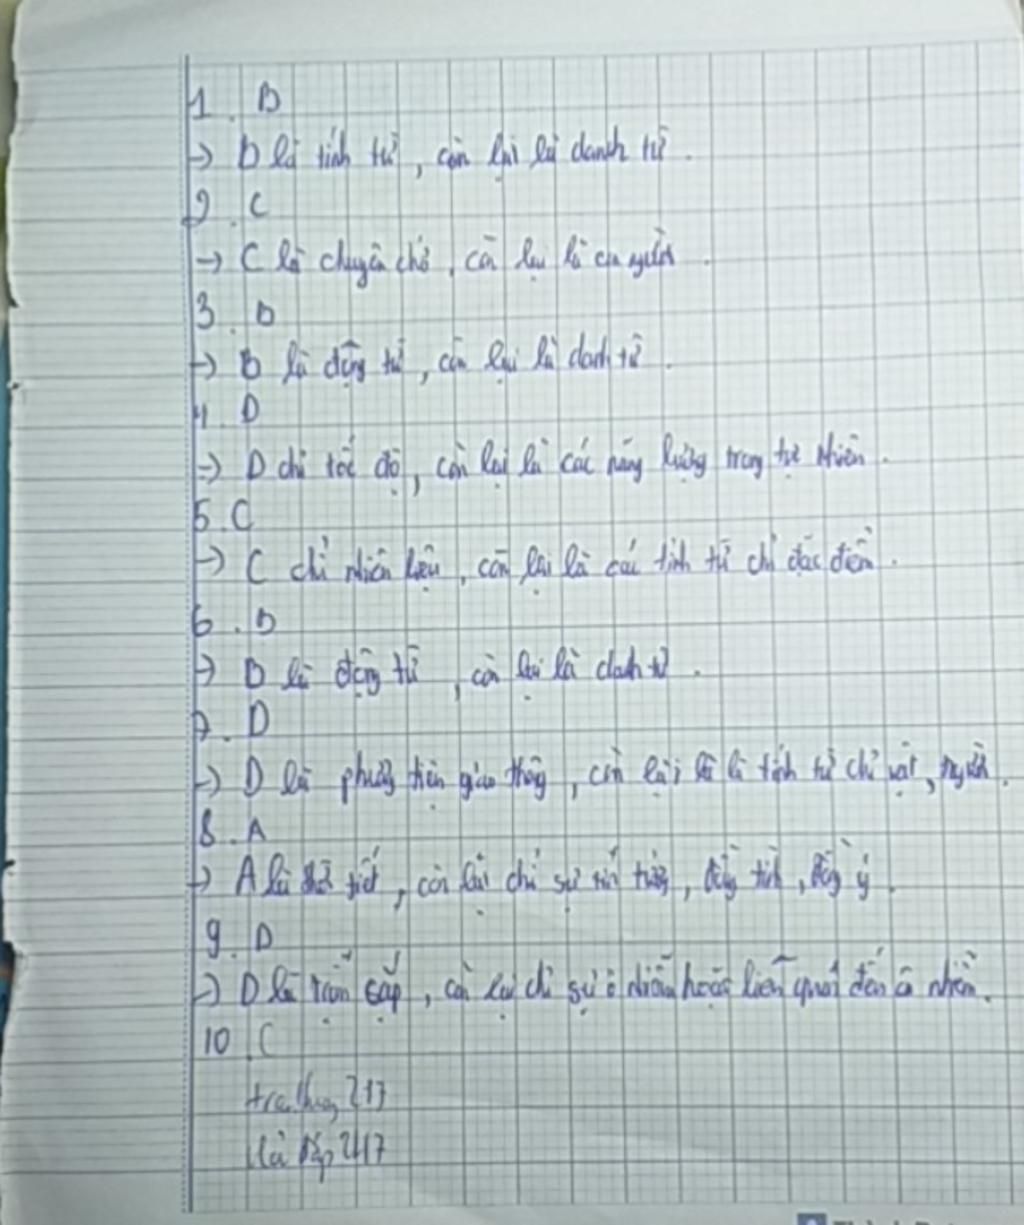 1. B
→ D là tính từ, còn lại là danh từ.
2. C
→ C là chuyên chở, còn lại là con người.
3. D
→ B là động từ, còn lại là danh từ.
4. D
→ D chỉ tốc độ, còn lại là các năng lượng trong tự nhiên.
5. C
→ C chỉ nhiên liệu, còn lại là các tính từ chỉ đặc điểm.
6. D
→ D là động từ, còn lại là danh từ.
7. D
→ D là phương tiện giao thông, còn lại là tính từ chỉ vật, người.
8. A
→ A là thời tiết, còn lại chỉ sự tin tưởng, đồng tình, đồng ý.
9. D
→ D là sắp, còn lại chỉ sự ô nhiễm hoặc liên quan đến ô nhiễm.
10. C
217
2417